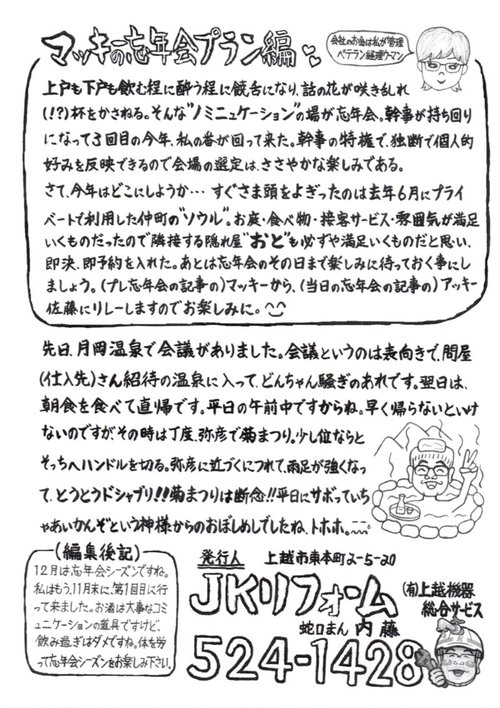 マッキーの忘年会プラン編
会社のお酒は私が管理
ベテラン経理ウーマン
上戸も下戸も飲む程に酔う程に饒舌になり、話の花が咲き乱れ
(!?)杯をかさねる。そんな"ノミニュケーション"の場が忘年会。幹事が持ち回り
になって3回目の今年、私の番が回って来た。幹事の特権で、独断で個人的
好みを反映できるので会場の選定は、ささやかな楽しみである。
さて、今年はどこにしようか… すぐさま頭をよぎったのは去年6月にプライ
ベートで利用した仲町の"ソウル"。お庭・食べ物・接客サービス・雰囲気が満足
いくものだったので隣接する隠れ屋"おと"も必ずや満足いくものだと思い、
即決、即予約を入れた。あとは忘年会のその日まで楽しみに待っておく事にし
ましょう。(プレ忘年会の記事の)マッキーから、(当日の忘年会の記事の)アッキー
佐藤にリレーしますのでお楽しみに。
先日、月岡温泉で会議がありました。会議というのは表向きで、問屋
(仕入先)さん紹待の温泉に入って、どんちゃん騒ぎのあれです。翌日は、
朝食を食べて直帰です。平日の午前中ですからね。早く帰らないといけ
ないのですが、その時は丁度、弥彦で菊まつり。少し位ならと
そっちへハンドルを切る。弥彦に近づくにつれて、雨足が強くなっ
て、とうとうドシャブリ!!菊まつりは断念!!平日にサボっていち
ゃあいかんぞという神様からのおぼしめしでしたね、トホホ。
(編集後記)
12月は忘年会シーズンですね。
私はもう、11月末に、第1回目に行
って来ました。お酒は大事なコミ
ュニケーションの道具ですけど、
飲み過ぎはダメですね。体を労
って忘年会シーズンをお楽しみ下さい。
発行人 上越市東本町2-5-20
JKリフォーム
(有)上越機器
総合サービス
蛇口まん 内藤
524-1428